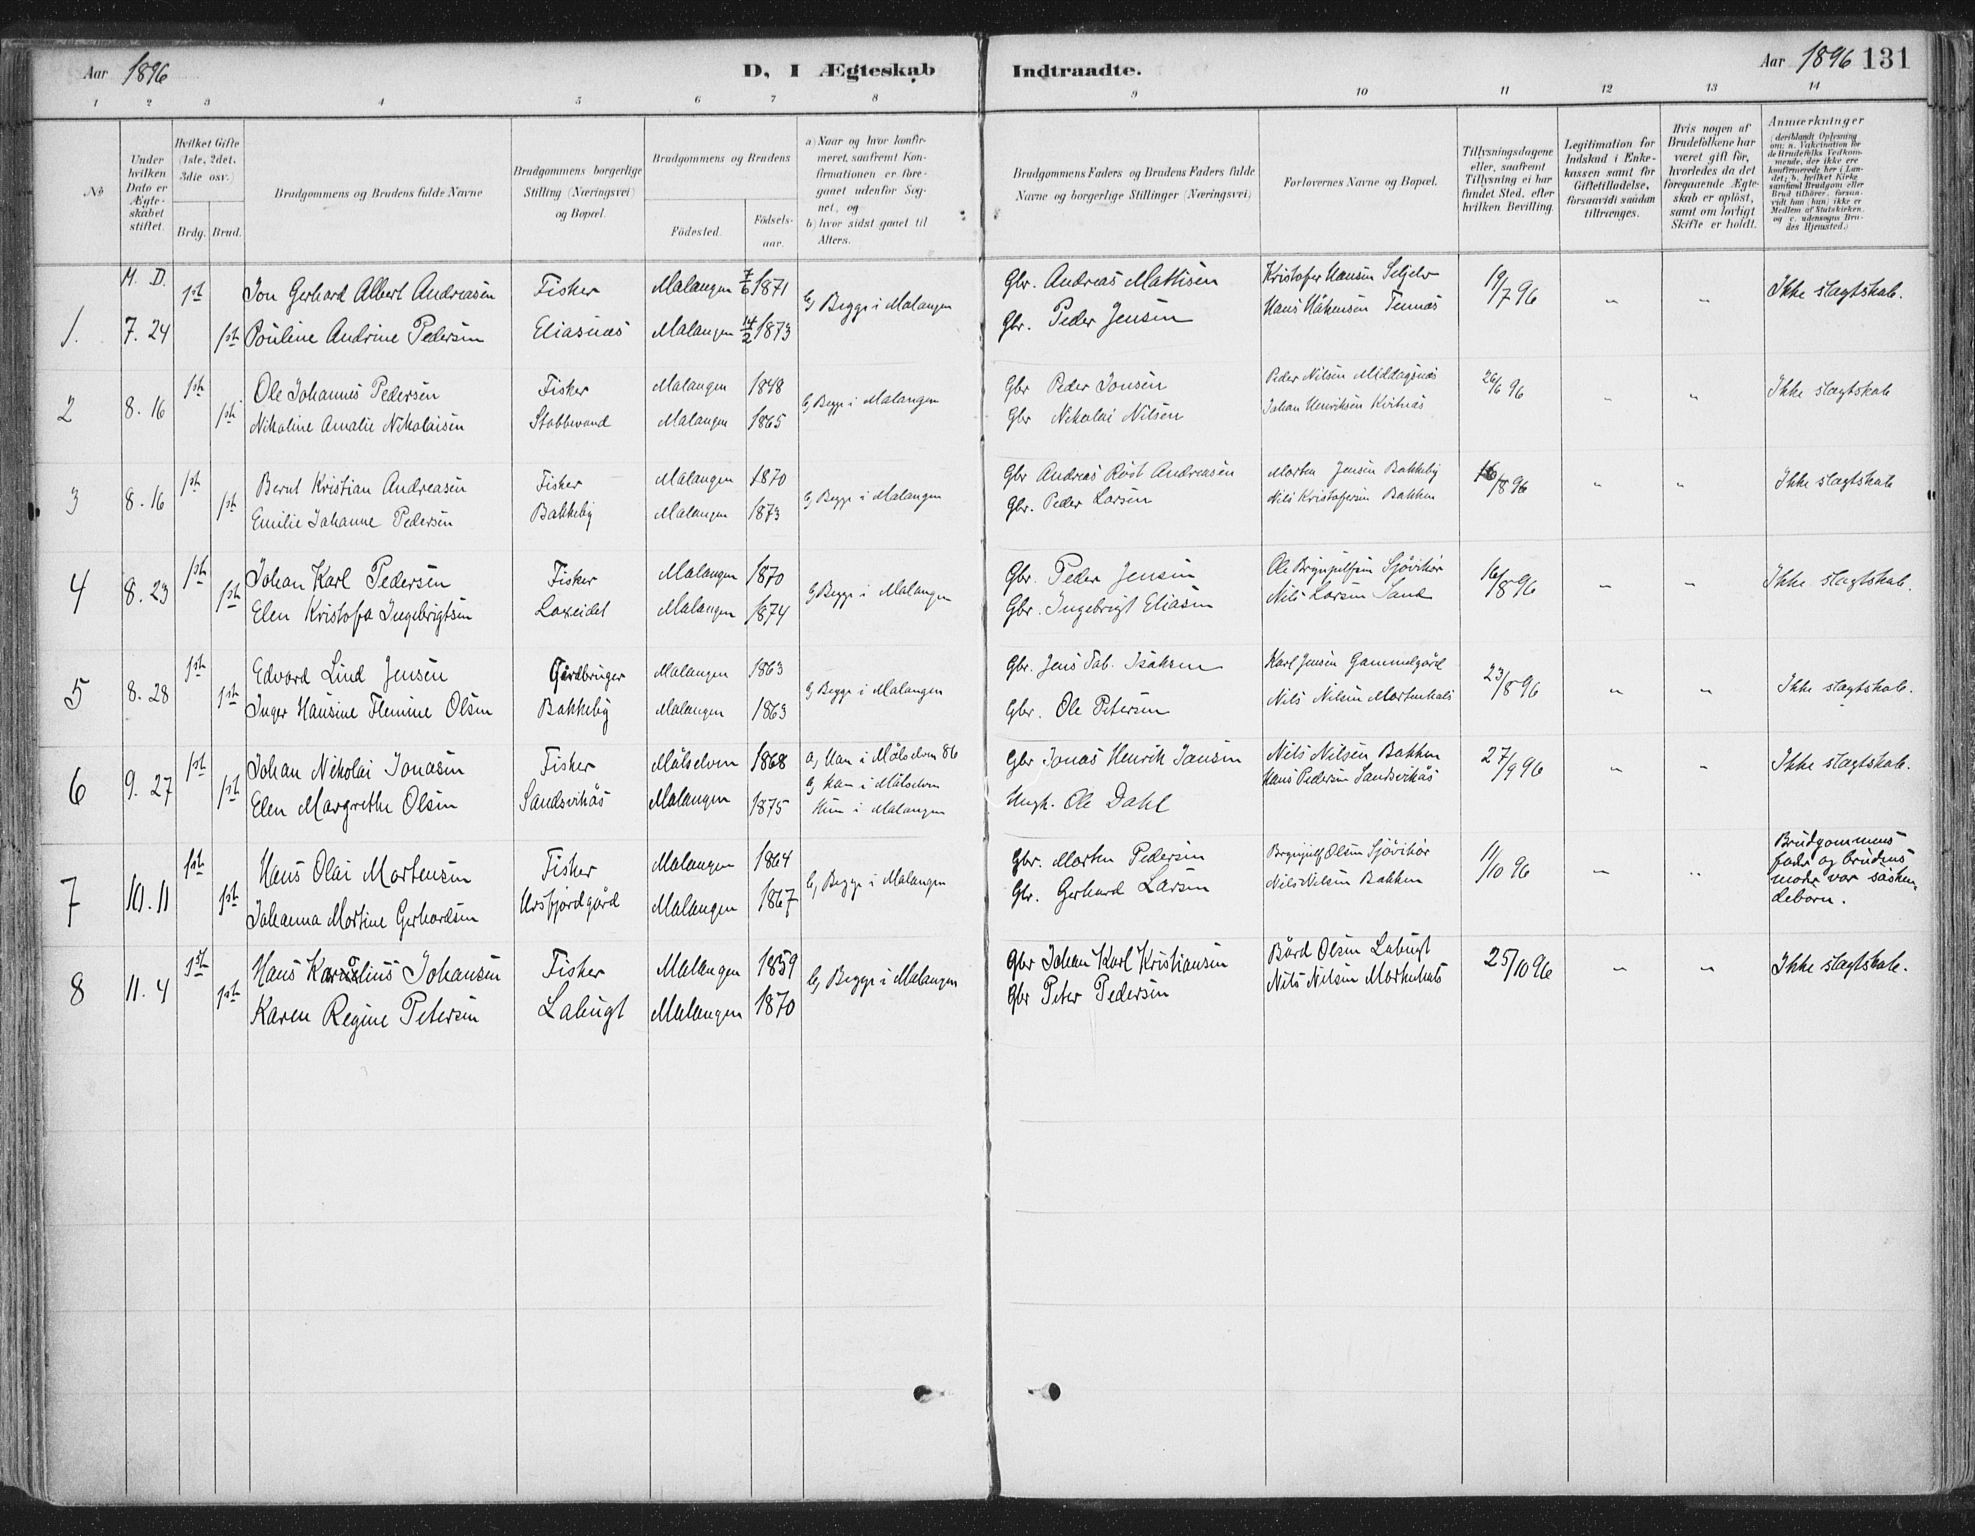 Aar 1896
D, I Ægteskab Indtraadte.
Aar 1896 131
1 2 3 4 5 6 7 8 9 10 11 12 13 14
No
Under hvilken Dato er Ægteskabet stiftet.
Hvilket Gifte (1ste, 2det, 3die osv.)
Brdg. Brud.
Brudgommens og Brudens fulde Navne
Brudgommens borgerlige Stilling (Næringsvei) og Bopæl.
Brudgommens og Brudens
Fødested.
Fødselsaar.
a) Naar og hvor konfirmeret, saafremt Konfirmationen er foregaaet udenfor Sognet, og
b) hvor sidst gaaet til Alters.
Brudgommens Faders og Brudens Faders fulde Navne og borgerlige Stillinger (Næringsvei)
Forlovernes Navne og Bopæl.
Tillysningsdagene eller, saafremt Tillysning ei har fundet Sted, efter hvilken Bevilling.
Legitimation for Indskud i Enkekassen samt for Giftetilladelse, forsaavidt saadan tiltrænges.
Hvis nogen af Brudefolkene har været gift før, hvorledes da det foregaaende Ægteskab er opløst, samt om lovligt Skifte er holdt.
Anmærkninger (deriblandt Oplysning om: a. Vakcination for de Brudefolks Vedkommende, der ikke ere konfirmerede her i Landet; b. hvilket Kirkesamfund Brudgom eller Brud tilhører, forsaavidt han (hun) ikke er Medlem af Statskirken, og c. udensogns Brudes Hjemsted.)
M. D.
1st Jon Gerhard Albert Andreasen Fisker Malangen 7/6 1871 b, Begge i Malangen Gbr. Andreas Mathisen Kristofer Hansen Seljelv 19/7 96 " " Ikke slagtskab.
1. 7. 24 1st Pouline Andrine Pedersen Eliasnæs Malangen 14/2 1873 Gbr. Peder Jensen Hans Håkensen Tennæs
1st Ole Johannes Pedersen Fisker Malangen 1848 b, Begge i Malangen Gbr Peder Jonsen Peder Nilsen Middagsnæs 26/6 96 " " Ikke slagtskab
2 8. 16 1st Nikoline Amalie Nikolaisen Stobbevand Malangen 1865 Gbr Nikolai Nilsen Johan Henriksen Kvitnæs
1st Bernt Kristian Andreasen Fisker Malangen 1870 b, Begge i Malangen Gbr Andreas Røst Andreasen Morten Jensen Bakkeby 16/8 96 " " Ikke slagtskab
3 8. 16 1st Emilie Johanne Pedersen Bakkeby Malangen 1873 Gbr. Peder Larsen Nils Kristofersen Bakken
1st Johan Karl Pedersen Fisker Malangen 1870 b, Begge i Malangen Gbr. Peder Jensen Ole Brynjulfsen Sjøvikør 16/8 96 " " Ikke slagtskab.
4 8. 23 1st Elen Kristofa Ingebrigtsen Laxeidet Malangen 1874 Gbr. Ingebrigt Eliasen Nils Larsen Sand
1st Edvard Lind Jensen Gårdbruger Malangen 1863 b, Begge i Malangen Gbr. Jens Fab. Isaksen Karl Jensen Gammelgård 23/8 96 " " Ikke slagtskab.
5 8. 28 1st Inger Hansine Flemine Olsen Bakkeby Malangen 1863 Gbr. Ole Petersen Nils Nilsen Mortenhals
1st Johan Nikolai Jonasen Fisker Målselven 1868 a, Han i Målselven 86 Gbr Jonas Henrik Jansen Nils Nilsen Bakken 27/9 96 " " Ikke slagtskab.
6 9. 27 1st Elen Margrethe Olsen Sandsvikås Malangen 1875 b, Han i Målselven Hun i Malangen Ungk. Ole Dahl Hans Pedersen Sandsvikås
1st Hans Olai Mortensen Fisker Malangen 1864 b, Begge i Malangen Gbr. Morten Pedersen Brynjulf Olsen Sjøvikør 11/10 96 " " Brudgommens fader og brudens moder var søskendebørn.
7 10. 11 1st Johanna Martine Gerhardsen Ursfjordgård Malangen 1867 Gbr. Gerhard Larsen Nils Nilsen Bakken
1st Hans Karelius Johansen Fisker Malangen 1859 b, Begge i Malangen Gbr Johan Karl Kristiansen Bård Olsen Labugt 25/10 96 " " Ikke slagtskab.
8 11. 4 1st Karen Regine Petersen Labugt Malangen 1870 Gbr Peter Pedersen Nils Nilsen Mortenhals